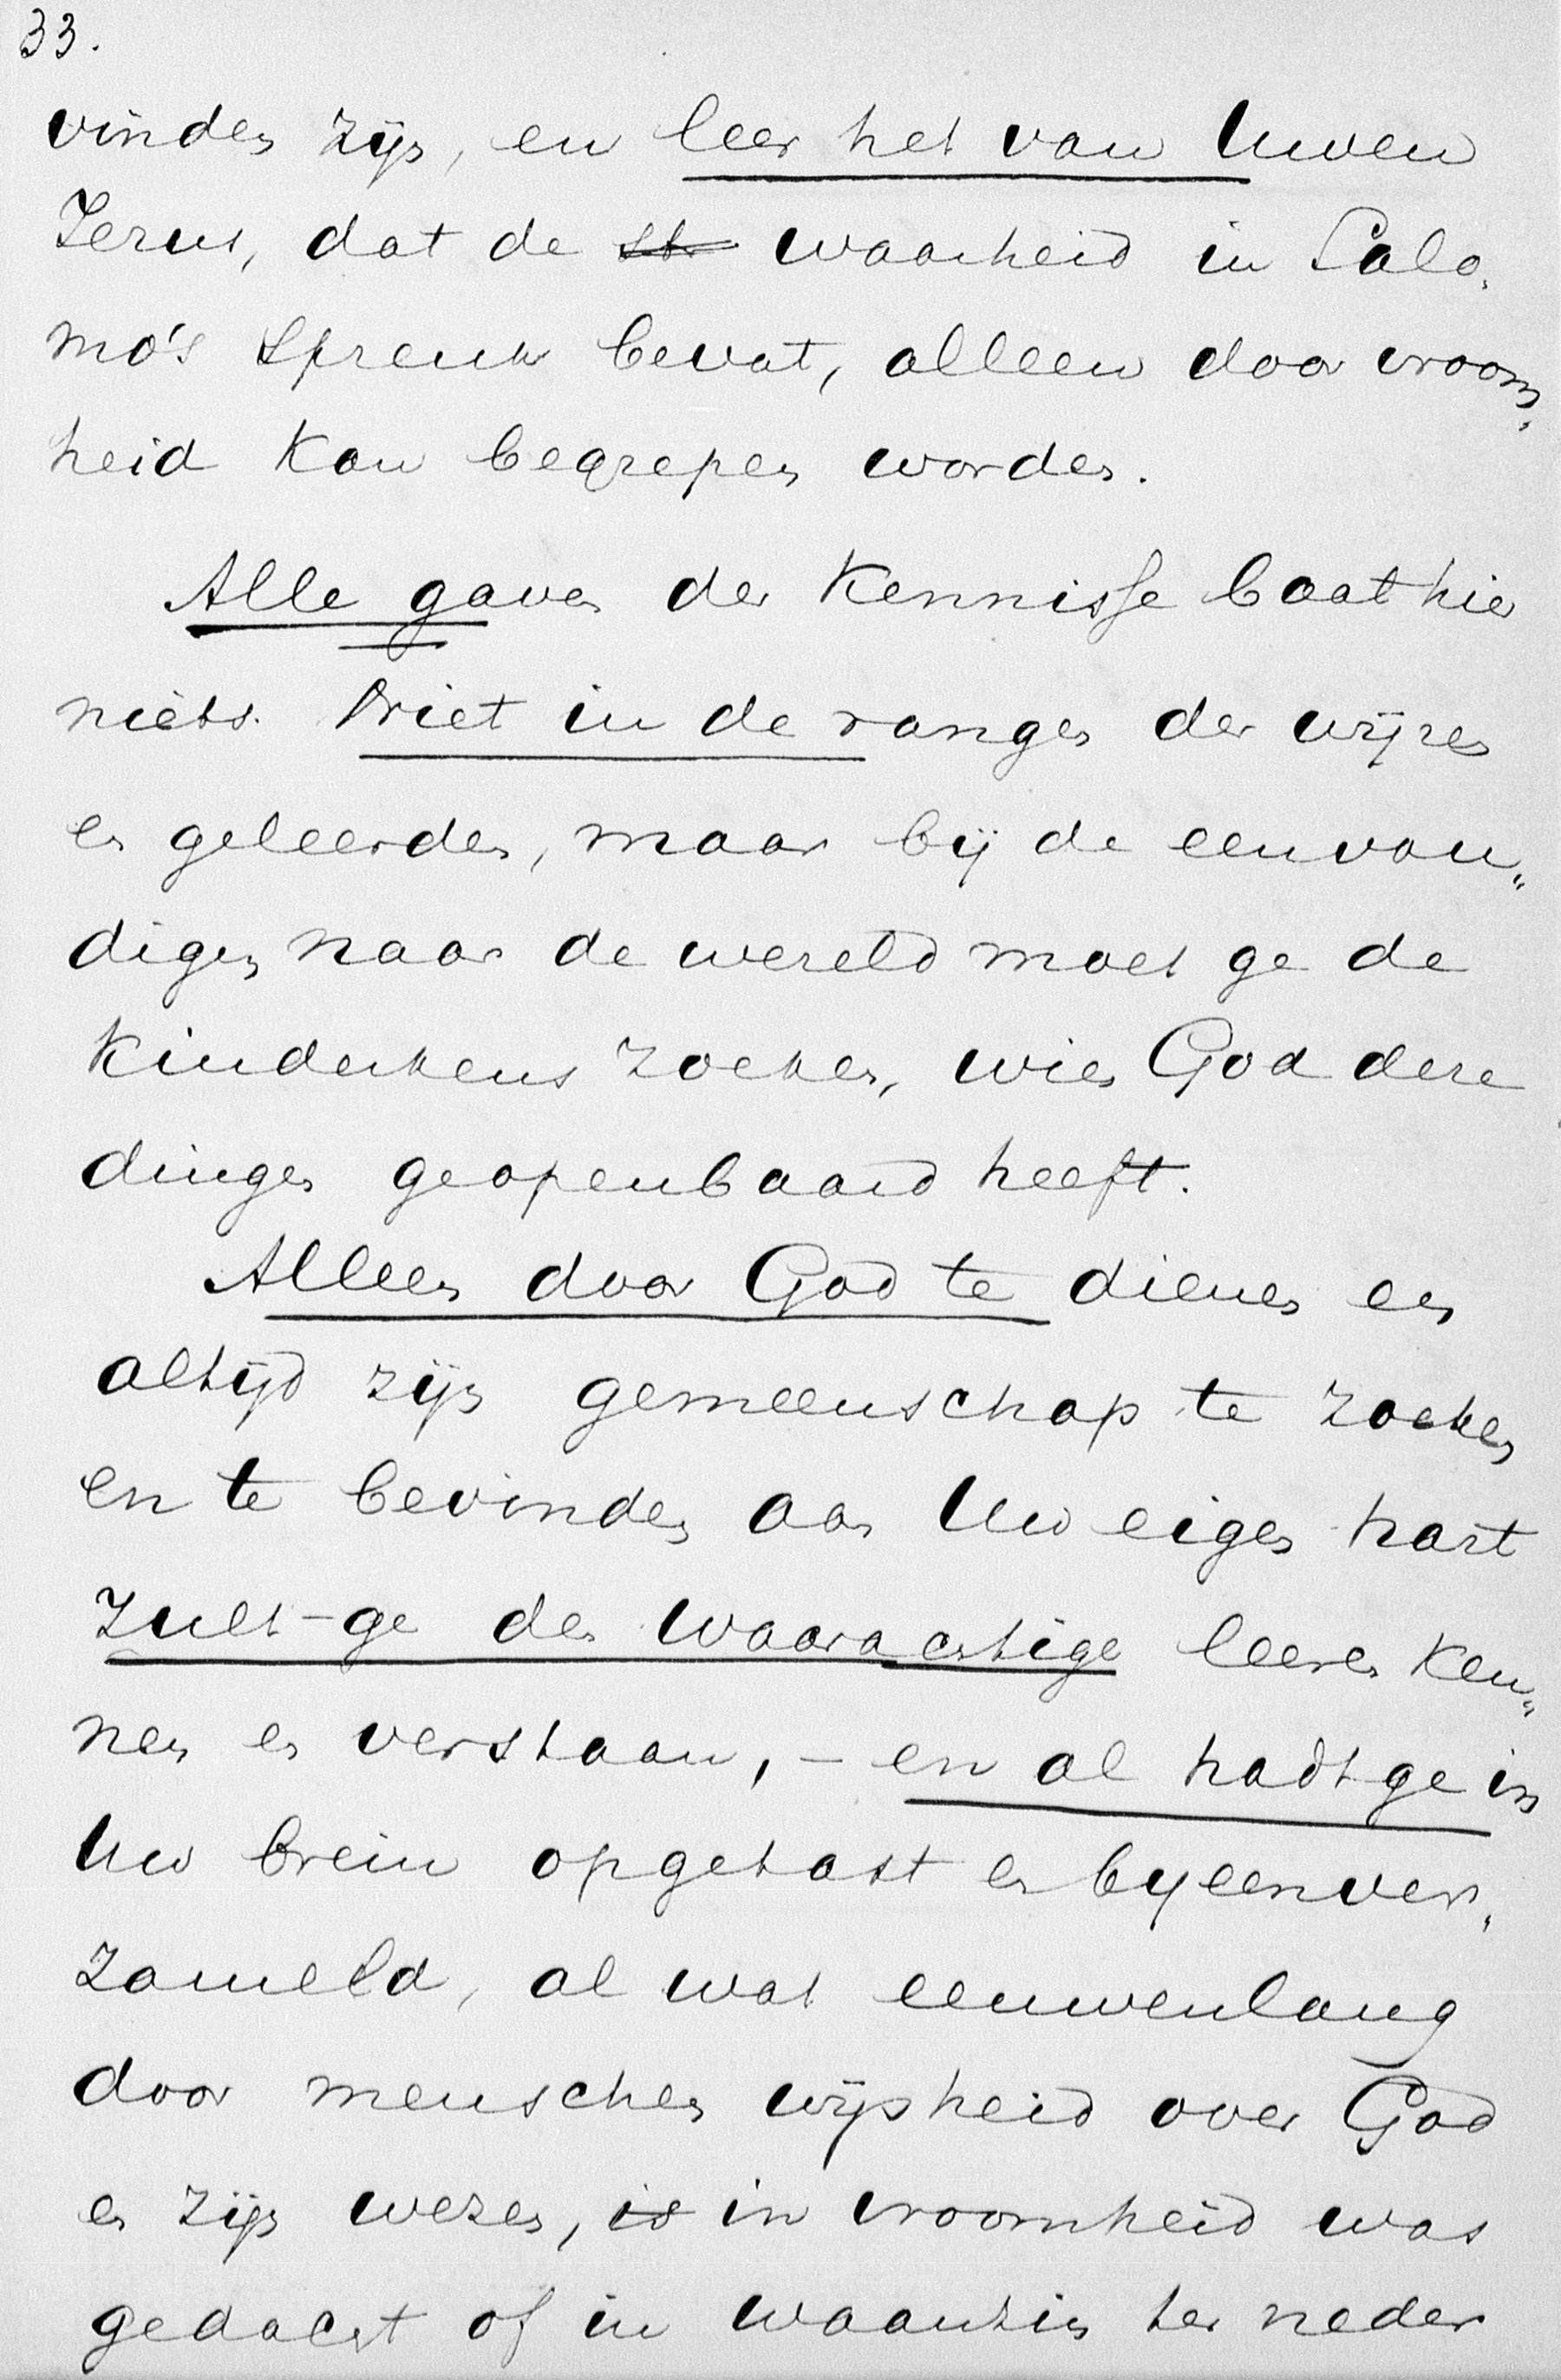 33.
vinden zijn, en leer het van Uwen
Jezus, dat de st waarheid in Salo„
mo's Spreuk bevat, alleen door vroom„
heid kan begrepen worden.
Alle gaven der Kennisse baat hier
niets. Niet in de rangen der wijzen
en geleerden, maar bij de eenvou„
digen naar de wereld moet ge de
kinderkens zoeken, wien God deze
dingen geopenbaard heeft.
Alleen door God te dienen en
altijd zijn gemeenschap te zoeken
en te bevinden aan Uw eigen hart
zult-ge den Waarachtige leeren ken„
nen en verstaan, – en al hadt ge in
Uw brein opgetast en byeenver„
zameld, al wat eeuwenlang
door menschen wijsheid over God
en zijn wezen, is in vroomheid was
gedacht of in waanzin ter neder